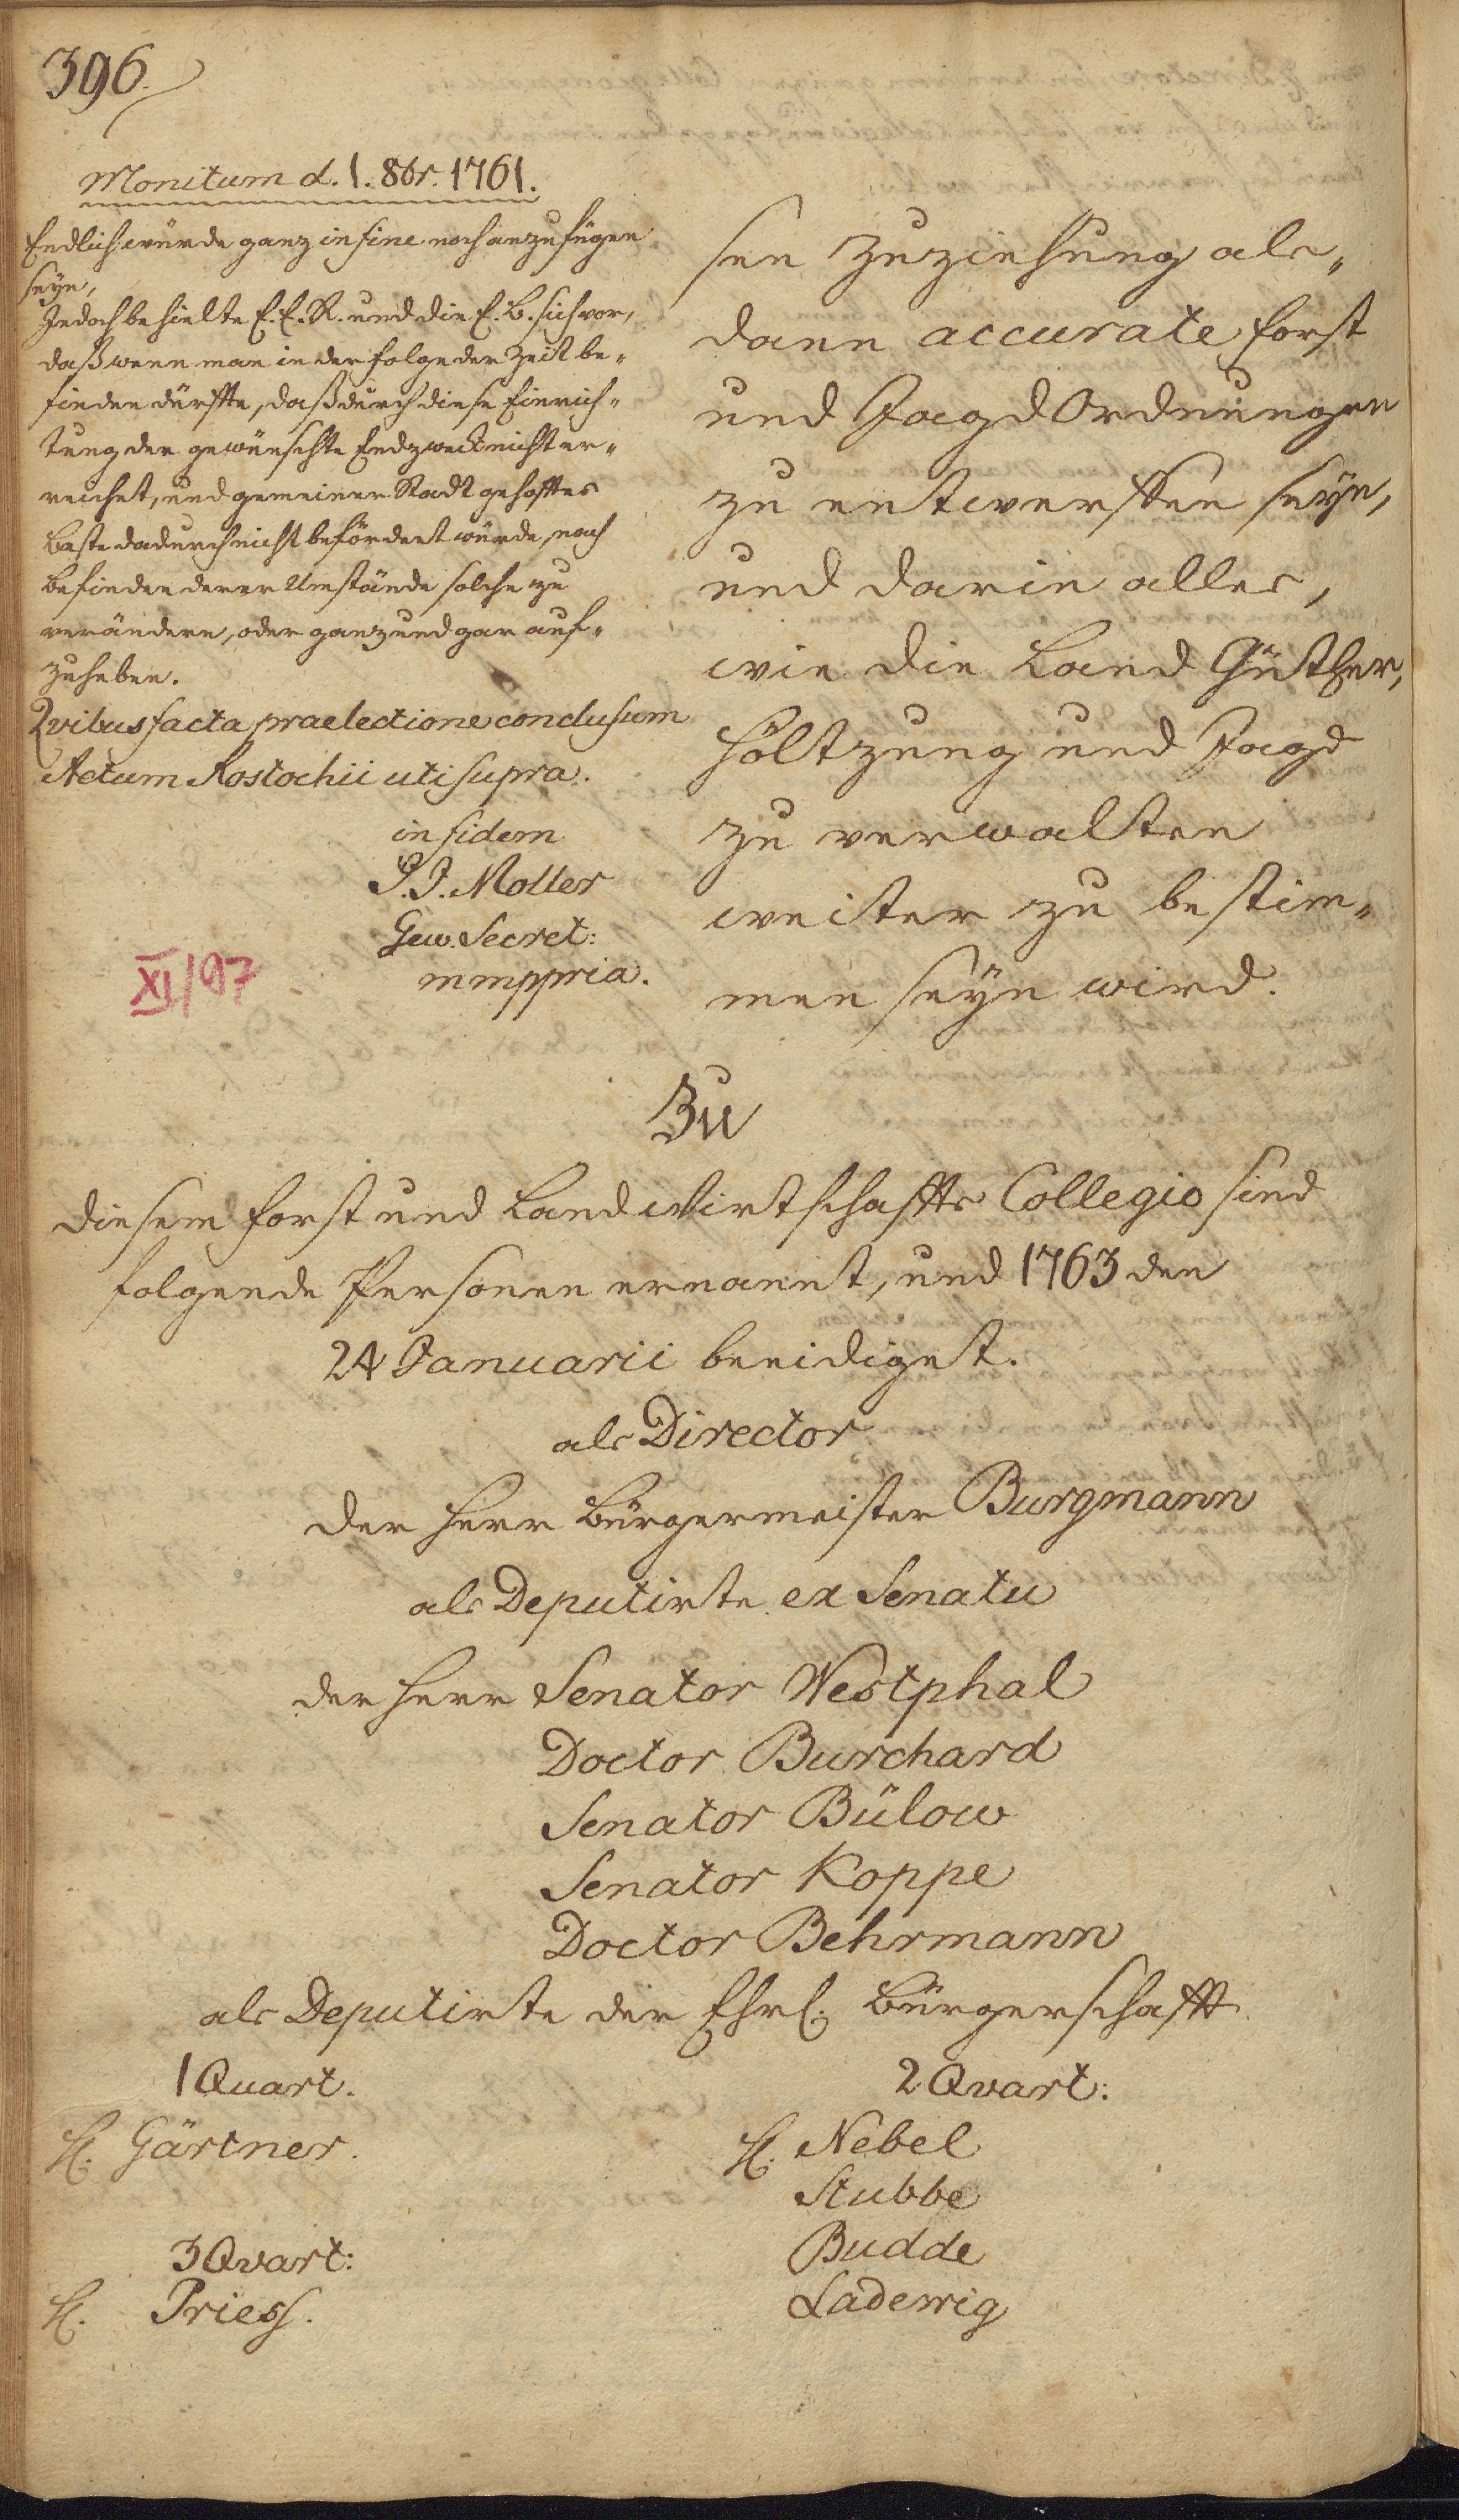 396.
Monitum d. 1. 8br. 1761.
Endlich würde ganz in fine noch anzufügen
seyn,
Jedoch behielte E. E. R. und die E. B. sich vor,
daß wenn man in der Folge der Zeit be-
finden dürffte, daß durch diese Einrich-
tung der gewünschte Endzweck nicht er-
reichet, und gemeiner Stadt gehofftes
Beste dadurch nicht befördert würde, nach
Befinden derer Umstände solche zu
verändern, oder ganz und gar auf-
zuheben.
Qvibus facta praelectione conclusum
Actum Rostochii uti supra.
in fidem
J. J. Moller
Gew. Secret:
mmppria.
XI/97
sen Zuziehung als-
dann accurate Forst
und Jagd Ordnungen
zu entwerffen seyn,
und darin alles,
wie die Land Güther,
Höltzung und Jagd
zu verwalten
weiter zu bestim-
men seyn wird.
Zu
diesem Forst und Land Wirtschaffts Collegio sind
folgende Personen ernannt, und 1763 den
24 Januarii beeidiget.
als Director
der Herr Bürgermeister Burgmann
als Deputirte ex Senatu
der Herr Senator Westphal
Doctor Burchard
Senator Bülow
Senator Koppe
Doctor Behrmann
als Deputirte der Ehrl. Bürgerschafft
1 Quart.
2 Qvart:
H. Gärtner.
H. Nebel
Stubbe
3 Qvart:
Budde
H. Priess.
Ladewig